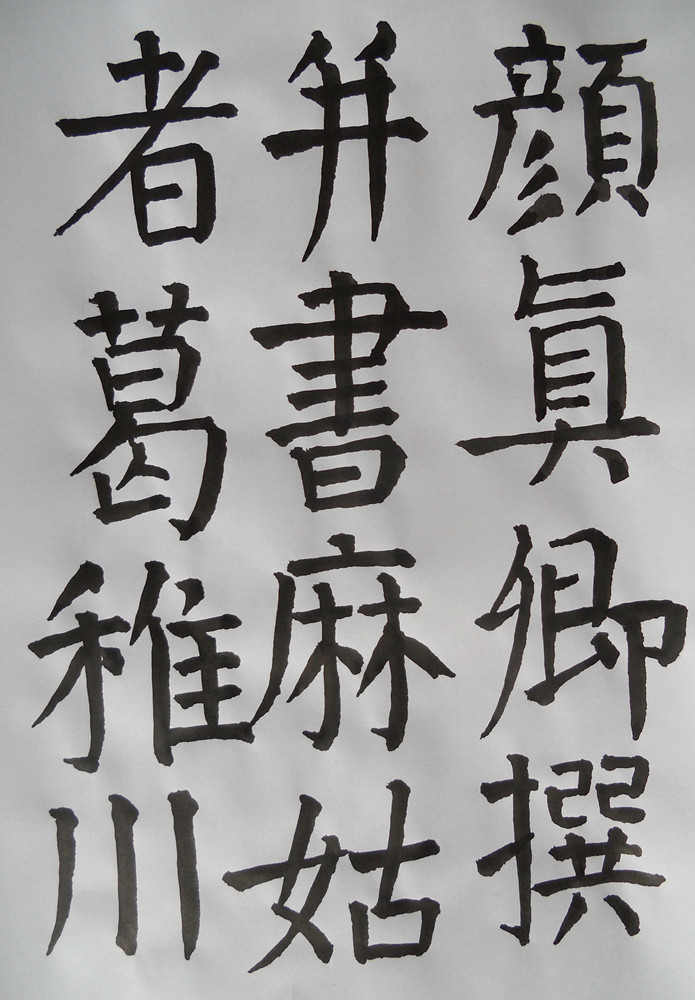 顔眞卿撰
并書麻姑
者葛稚川